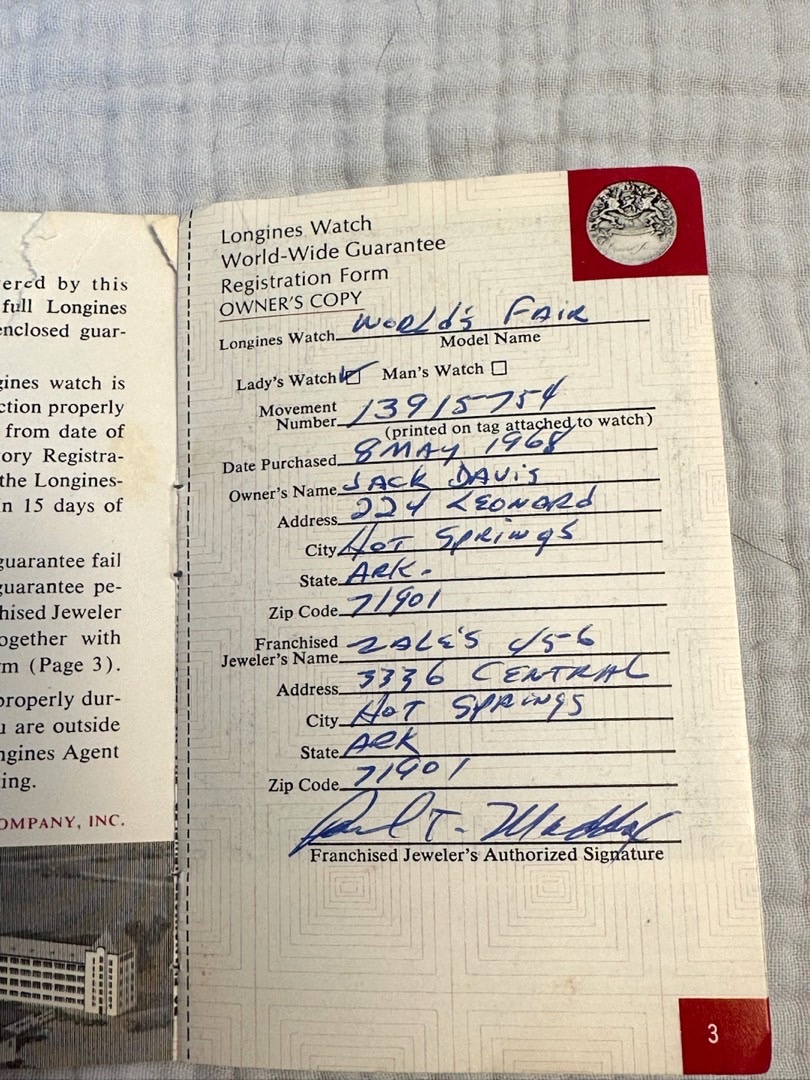 ered by this
full Longines
enclosed guar-
gines watch is
ction properly
from date of
tory Registra-
the Longines-
n 15 days of
guarantee fail
guarantee pe-
hised Jeweler
ogether with
m (Page 3).
properly dur-
u are outside
ngines Agent
ing.
OMPANY, INC.
Longines Watch
World-Wide Guarantee
Registration Form
OWNER'S COPY
Longines Watch World's Fair
Model Name
Lady's Watch Man's Watch
Movement
Number 13915754
(printed on tag attached to watch)
Date Purchased 8 MAY 1968
Owner's Name JACK DAVIS
Address 224 LEONARd
City HOT SPRINGS
State ARK.
Zip Code 71901
Franchised
Jeweler's Name ZALE'S
Address 3336 CENTRAL
City HOT SPRINGS
State ARK
Zip Code 71901
T. Maddox
Franchised Jeweler's Authorized Signature
3